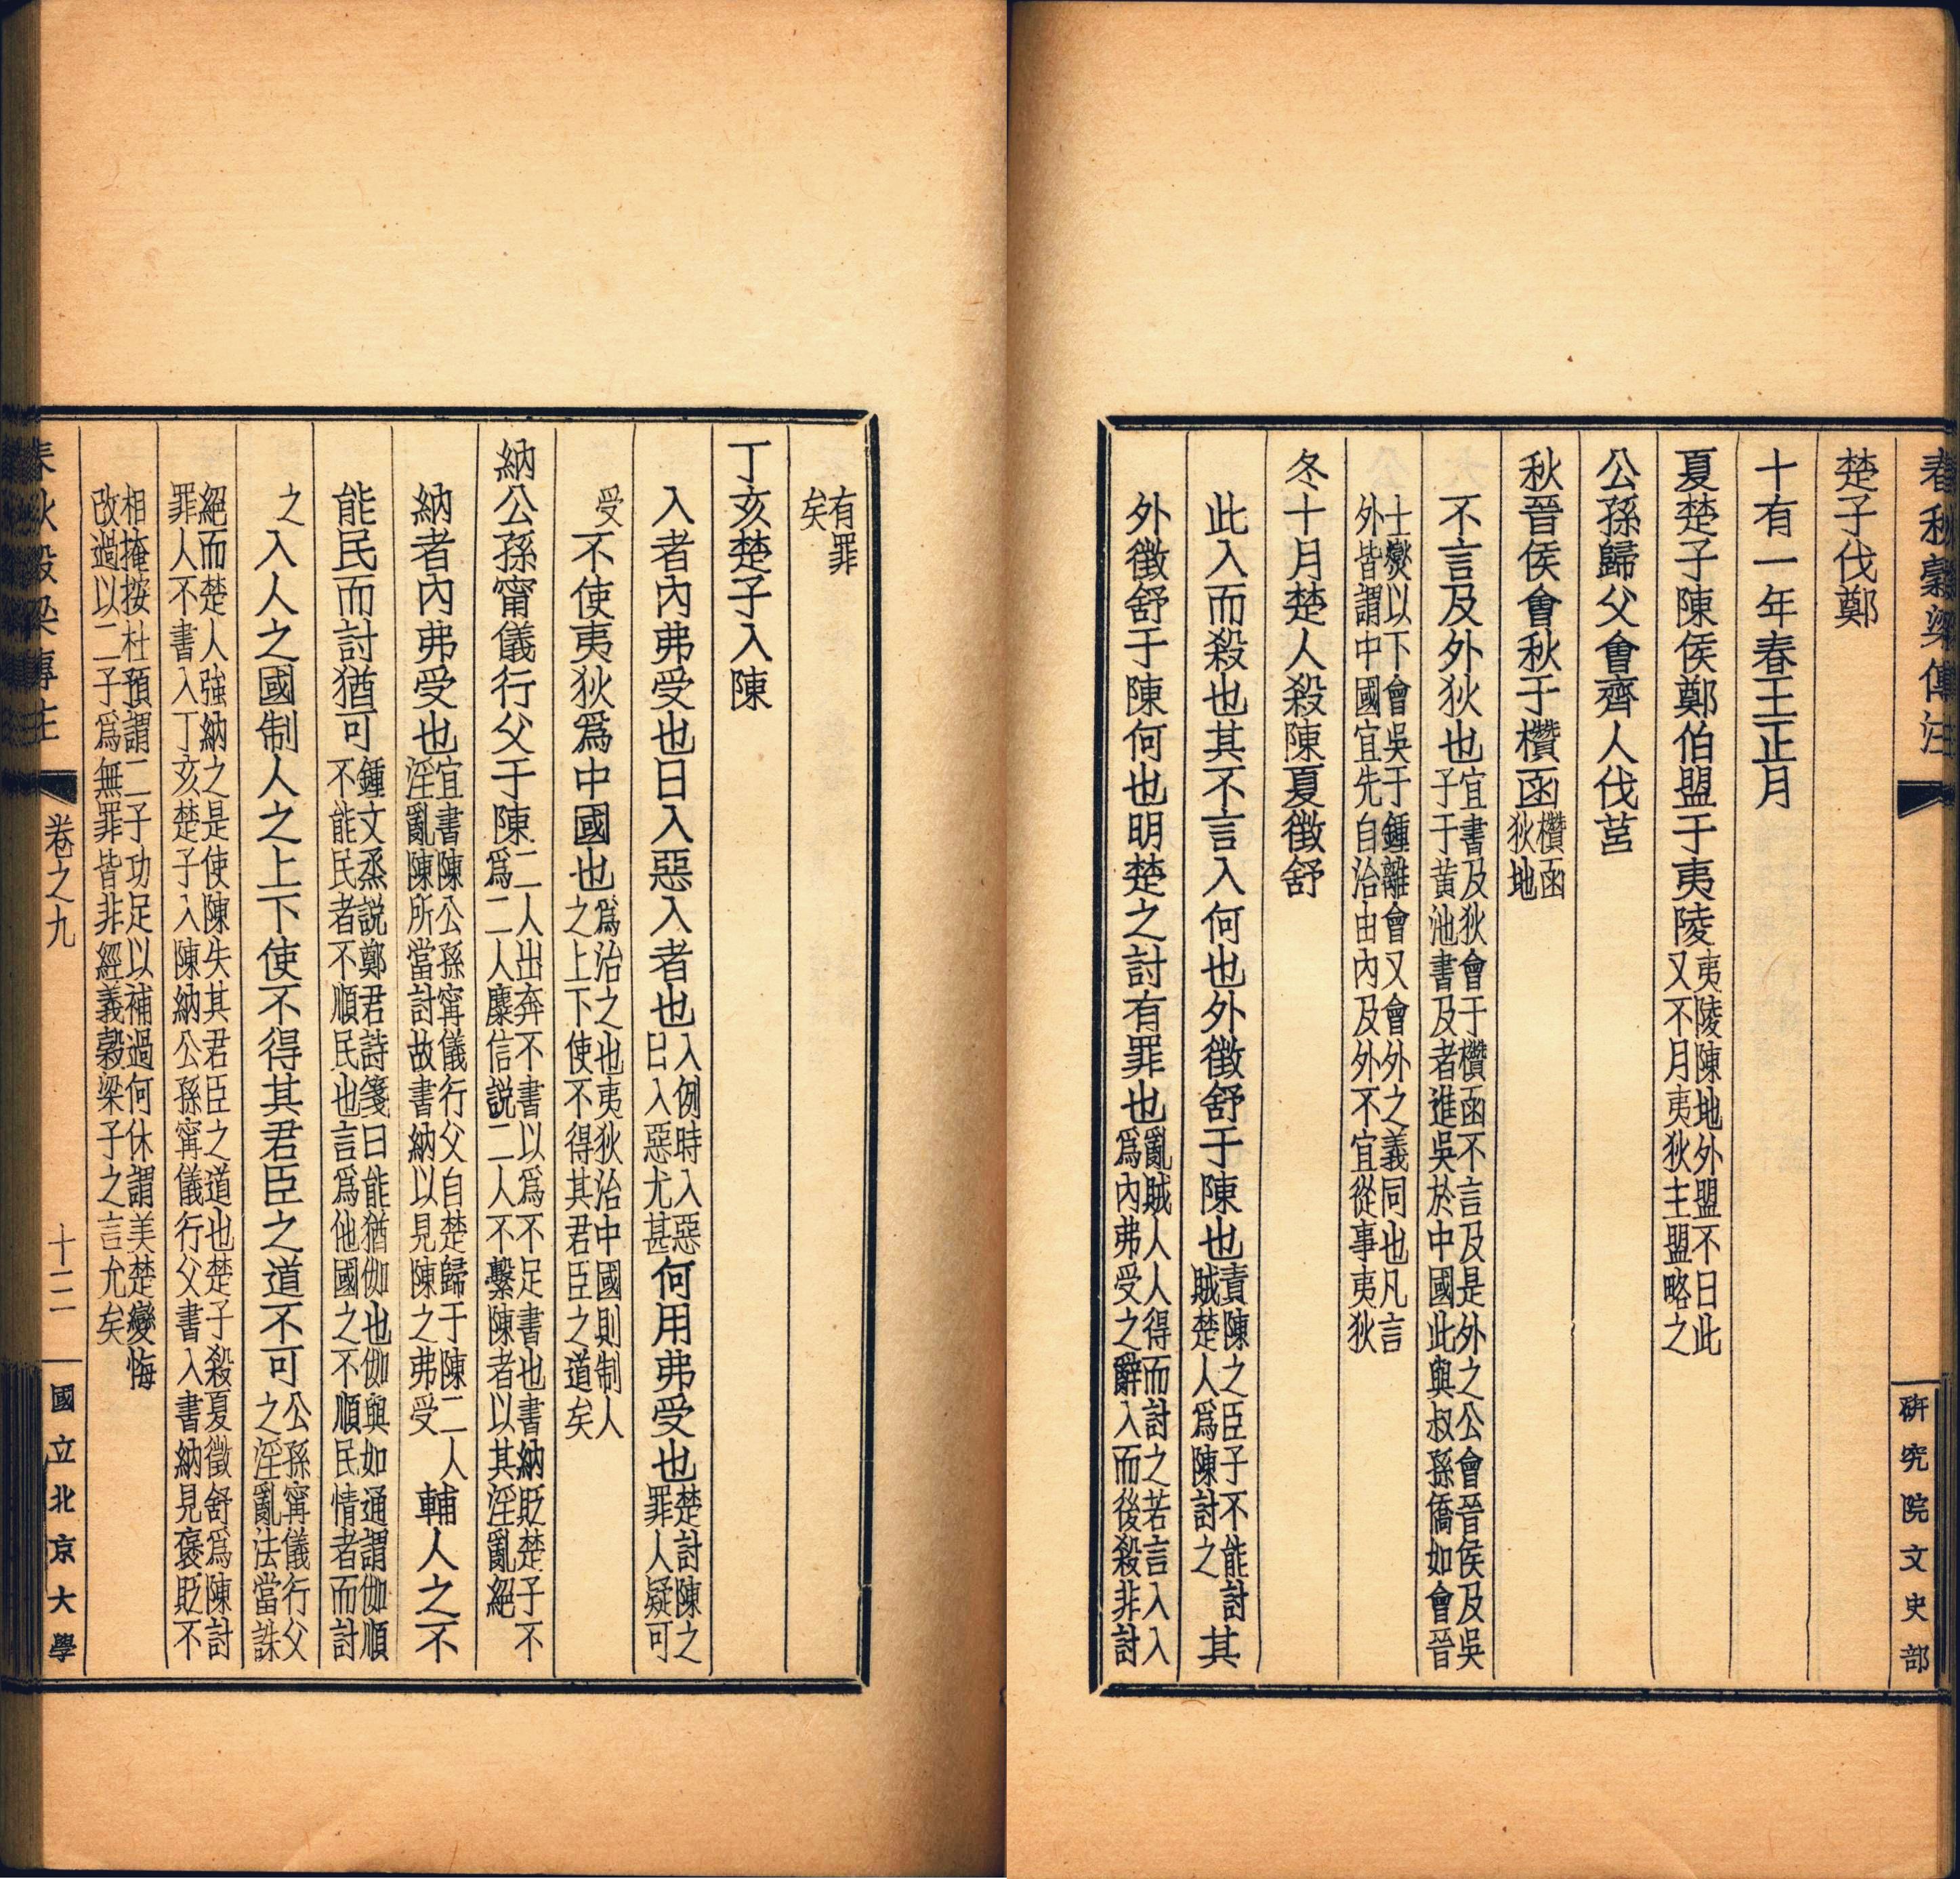 春秋穀梁傳注
研究院文史部
楚子伐鄭
十有一年春王正月
夏楚子陳侯鄭伯盟于夷陵夷陵陳地外盟不日此又不月夷狄主盟略之
公孫歸父會齊人伐莒
秋晉侯會狄于欑函欑函狄地
不言及外狄也宜書及狄會于欑函不言及是外之公會晉侯及吳子于黃池書及者進吳於中國此與叔孫僑如會晉
士燮以下會吳于鍾離會又會外之義同也凡言外皆謂中國宜先自治由內及外不宜從事夷狄
冬十月楚人殺陳夏徵舒
此入而殺也其不言入何也外徵舒于陳也責陳之臣子不能討賊楚人爲陳討之其
外徵舒于陳何也明楚之討有罪也亂賊人人得而討之若言入入爲內弗受之辭入而後殺非討
有罪矣
丁亥楚子入陳
入者內弗受也日入惡入者也入例時入惡日入惡尤甚何用弗受也楚討陳之罪人疑可
受不使夷狄爲中國也爲治之也夷狄治中國則制人之上下使不得其君臣之道矣
納公孫甯儀行父于陳二人出奔不書以爲不足書也書納貶楚子不爲二人麋信説二人不繫陳者以其淫亂絕
納者內弗受也宜書陳公孫甯儀行父自楚歸于陳二人淫亂陳所當討故書納以見陳之弗受輔人之不
能民而討猶可鍾文烝説鄭君詩箋曰能猶伽也伽與如通謂伽順不能民者不順民也言爲他國之不順民情者而討
之入人之國制人之上下使不得其君臣之道不可公孫甯儀行父之淫亂法當誅
絕而楚人強納之是使陳失其君臣之道也楚子殺夏徵舒爲陳討罪人不書入丁亥楚子入陳納公孫甯儀行父書入書納見褒貶不
相掩按杜預謂二子功足以補過何休謂美楚變悔改過以二子爲無罪皆非經義穀梁子之言允矣
春秋穀梁傳注
卷之九
十二
國立北京大學